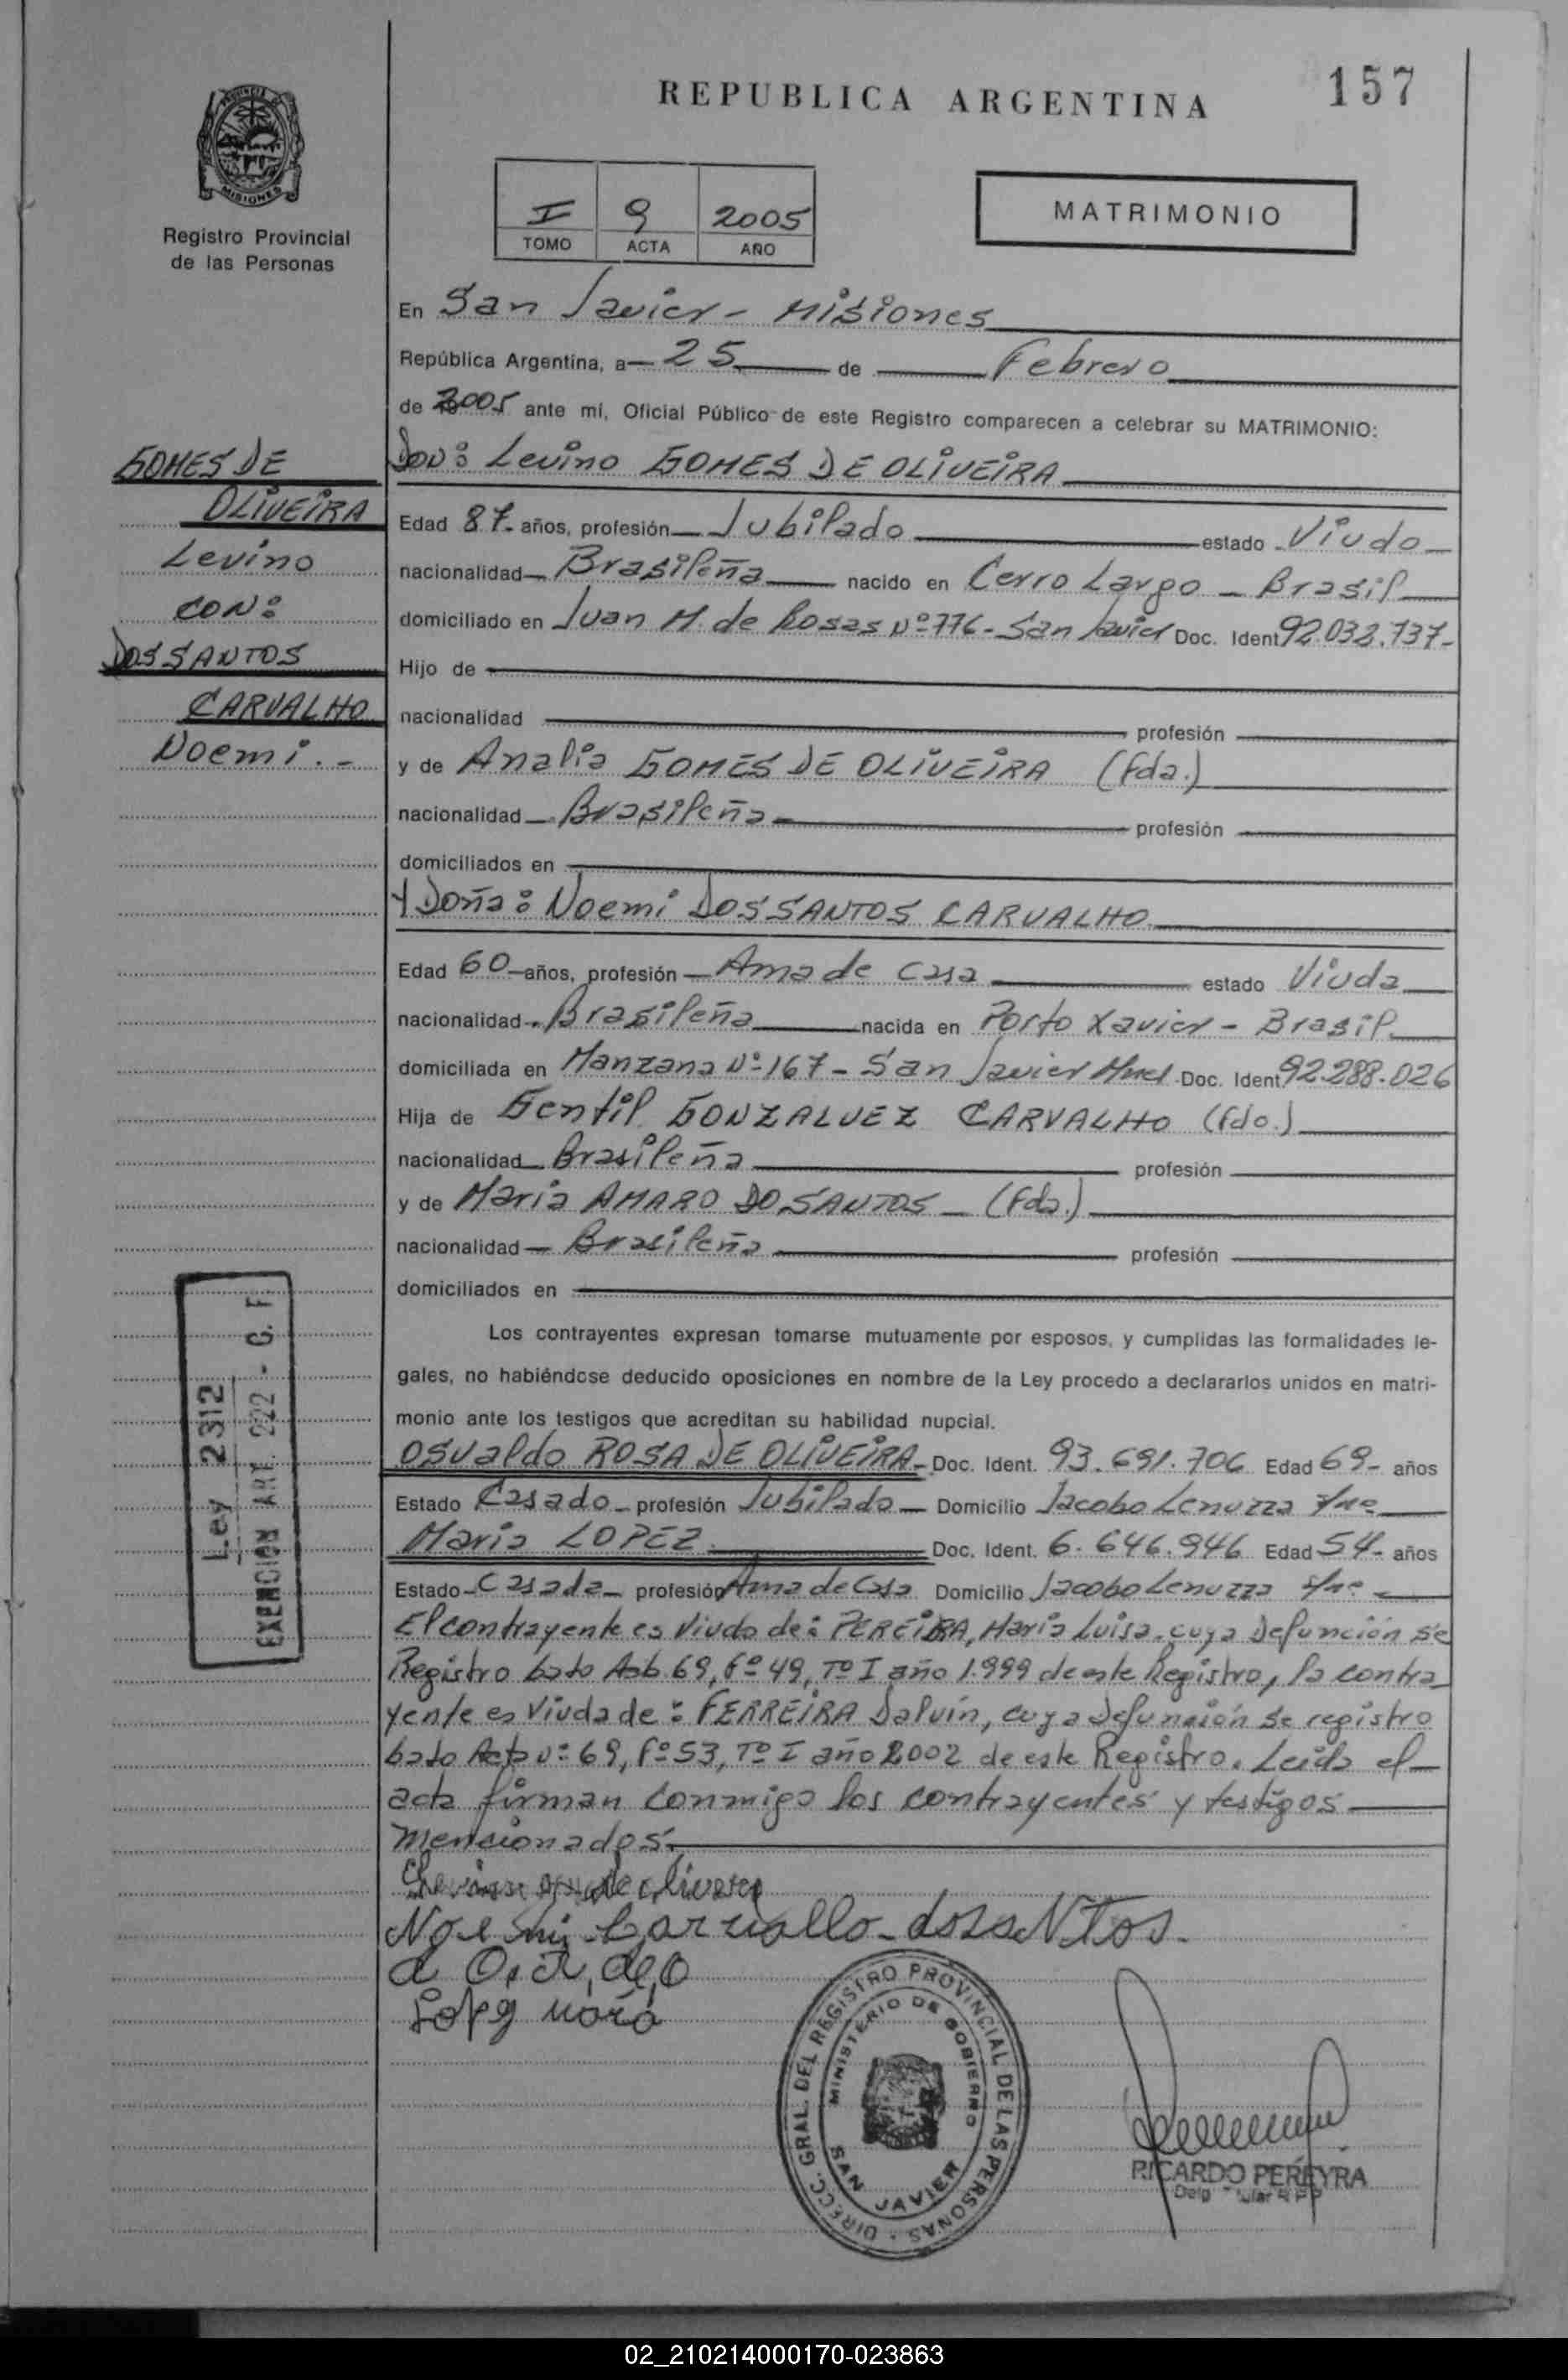 REPUBLICA ARGENTINA
157
PROVINCIA DE
MISIONES
Registro Provincial
de las Personas
I 9 2005
TOMO ACTA AÑO
MATRIMONIO
En San Javier - Misiones
República Argentina, a 25 de Febrero
de 2005 ante mí, Oficial Público de este Registro comparecen a celebrar su MATRIMONIO:
GOMES DE
OLIVEIRA
Levino
CON:
DOS SANTOS
CARVALHO
Noemi.-
Don: Levino GOMES DE OLIVEIRA
Edad 87 años, profesión Jubilado estado Viudo
nacionalidad Brasileña nacido en Cerro Largo - Brasil
domiciliado en Juan M. de Rosas Nº 776 - San Javier Doc. Ident 92.032.737-
Hijo de
nacionalidad profesión
y de Analia GOMES DE OLIVEIRA (fda.)
nacionalidad Brasileña profesión
domiciliados en
Y Doña: Noemi DOS SANTOS CARVALHO
Edad 60 años, profesión Ama de Casa estado Viuda
nacionalidad Brasileña nacida en Porto Xavier - Brasil
domiciliada en Manzana Nº 167 - San Javier Mnes Doc. Ident 92.288.026
Hija de Gentil GONZALVEZ CARVALHO (fdo.)
nacionalidad Brasileña profesión
y de Maria AMARO DO SANTOS - (fda.)
nacionalidad Brasileña profesión
domiciliados en
Los contrayentes expresan tomarse mutuamente por esposos, y cumplidas las formalidades le-
gales, no habiéndose deducido oposiciones en nombre de la Ley procedo a declararlos unidos en matri-
monio ante los testigos que acreditan su habilidad nupcial.
Osvaldo ROSA DE OLIVEIRA - Doc. Ident. 93.691.706 Edad 69- años
Estado Casado - profesión Jubilado - Domicilio Jacobo Lenuzza s/nº
Maria LOPEZ Doc. Ident. 6.646.946 Edad 54- años
Estado - Casada - profesión Ama de Casa Domicilio Jacobo Lenuzza s/nº -
El contrayente es Viudo de: PEREIRA, Maria Luisa, cuya Defunción se
Registro bajo Acta 69, Fº 49, Tº I año 1.999 de este Registro, la contra
yente es Viuda de: FERREIRA Dalvín, cuya Defunción se registro
bajo Acta Nº 69, Fº 53, Tº I año 2002 de este Registro. Leida el
acta firman conmigo los contrayentes y testigos
mencionados.
Ley 2312
EXENCION ART. 222 - C. F.
Noemi Carvallo dossaNTos.
DIRECC. GRAL. DEL REGISTRO PROVINCIAL DE LAS PERSONAS
MINISTERIO DE GOBIERNO
SAN JAVIER
RICARDO PEREYRA
02_210214000170-023863